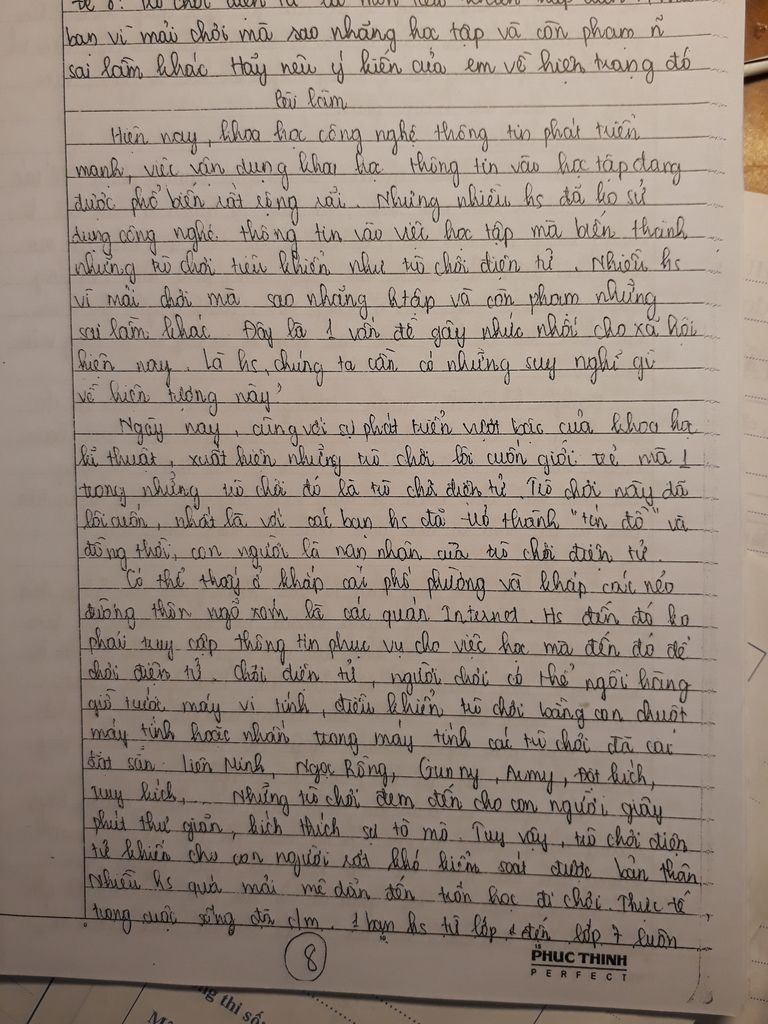 bạn vì mải chơi mà sao nhãng học tập và còn phạm n~
sai lầm khác Hãy nêu ý kiến của em về hiện trạng đó
Bài làm
Hiện nay, khoa học công nghệ thông tin phát triển
mạnh, việc vận dụng khoa học thông tin vào học tập đang
được phổ biến rất rộng rãi. Nhưng nhiều hs đã ko sử
dụng công nghệ thông tin vào việc học tập mà biến thành
những trò chơi tiêu khiển như trò chơi điện tử. Nhiều hs
vì mải chơi mà sao nhãng htập và còn phạm những
sai lầm khác Đây là 1 vấn đề gây nhức nhối cho xã hội
hiện nay. Là hs, chúng ta cần có những suy nghĩ gì
về hiện tượng này?
Ngày nay, cùng với sự phát triển vượt bậc của khoa học
kĩ thuật, xuất hiện những trò chơi lôi cuốn giới trẻ mà 1
trong những trò chơi đó là trò chơi điện tử. Trò chơi này đã
lôi cuốn, nhất là với các bạn hs đã trở thành "tín đồ" và
đồng thời, con người là nạn nhân của trò chơi điện tử.
Có thể thấy ở khắp các phố phường và khắp các nẻo
đường thôn ngõ xóm là các quán Internet. Hs đến đó ko
phải truy cập thông tin phục vụ cho việc học mà đến đó để
chơi điện tử. Chơi điện tử, người chơi có thể ngồi hàng
giờ trước máy vi tính, điều khiển trò chơi bằng con chuột
máy tính hoặc nhấn trong máy tính các trò chơi đã cài
đặt sẵn: Liên Minh, Ngọc Rồng, Gunny, Army, Đột kích,
Truy kích,... Những trò chơi đem đến cho con người giây
phút thư giãn, kích thích sự tò mò. Tuy vậy, trò chơi điện
tử khiến cho con người rất khó kiểm soát được bản thân.
Nhiều hs quá mải mê dẫn đến trốn học đi chơi. Thực tế
trong cuộc sống đã c/m. 1 bạn hs từ lớp 1 đến lớp 7 luôn
8
PHUC THINH
PERFECT